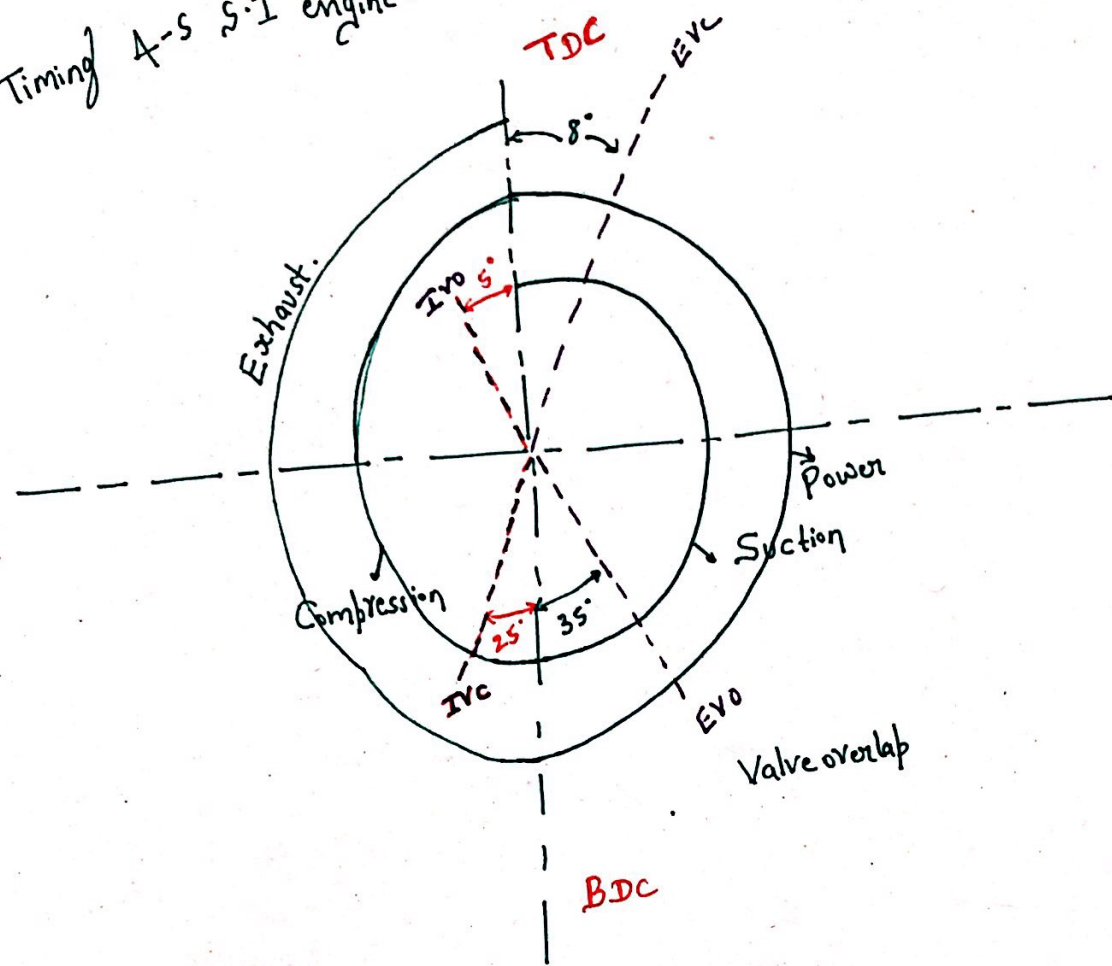 Timing 4-S S.I engine
TDC
EVC
8°
IVO
5°
Exhaust.
Power
Suction
Compression
25°
35°
IVC
EVO
Valve overlap
BDC